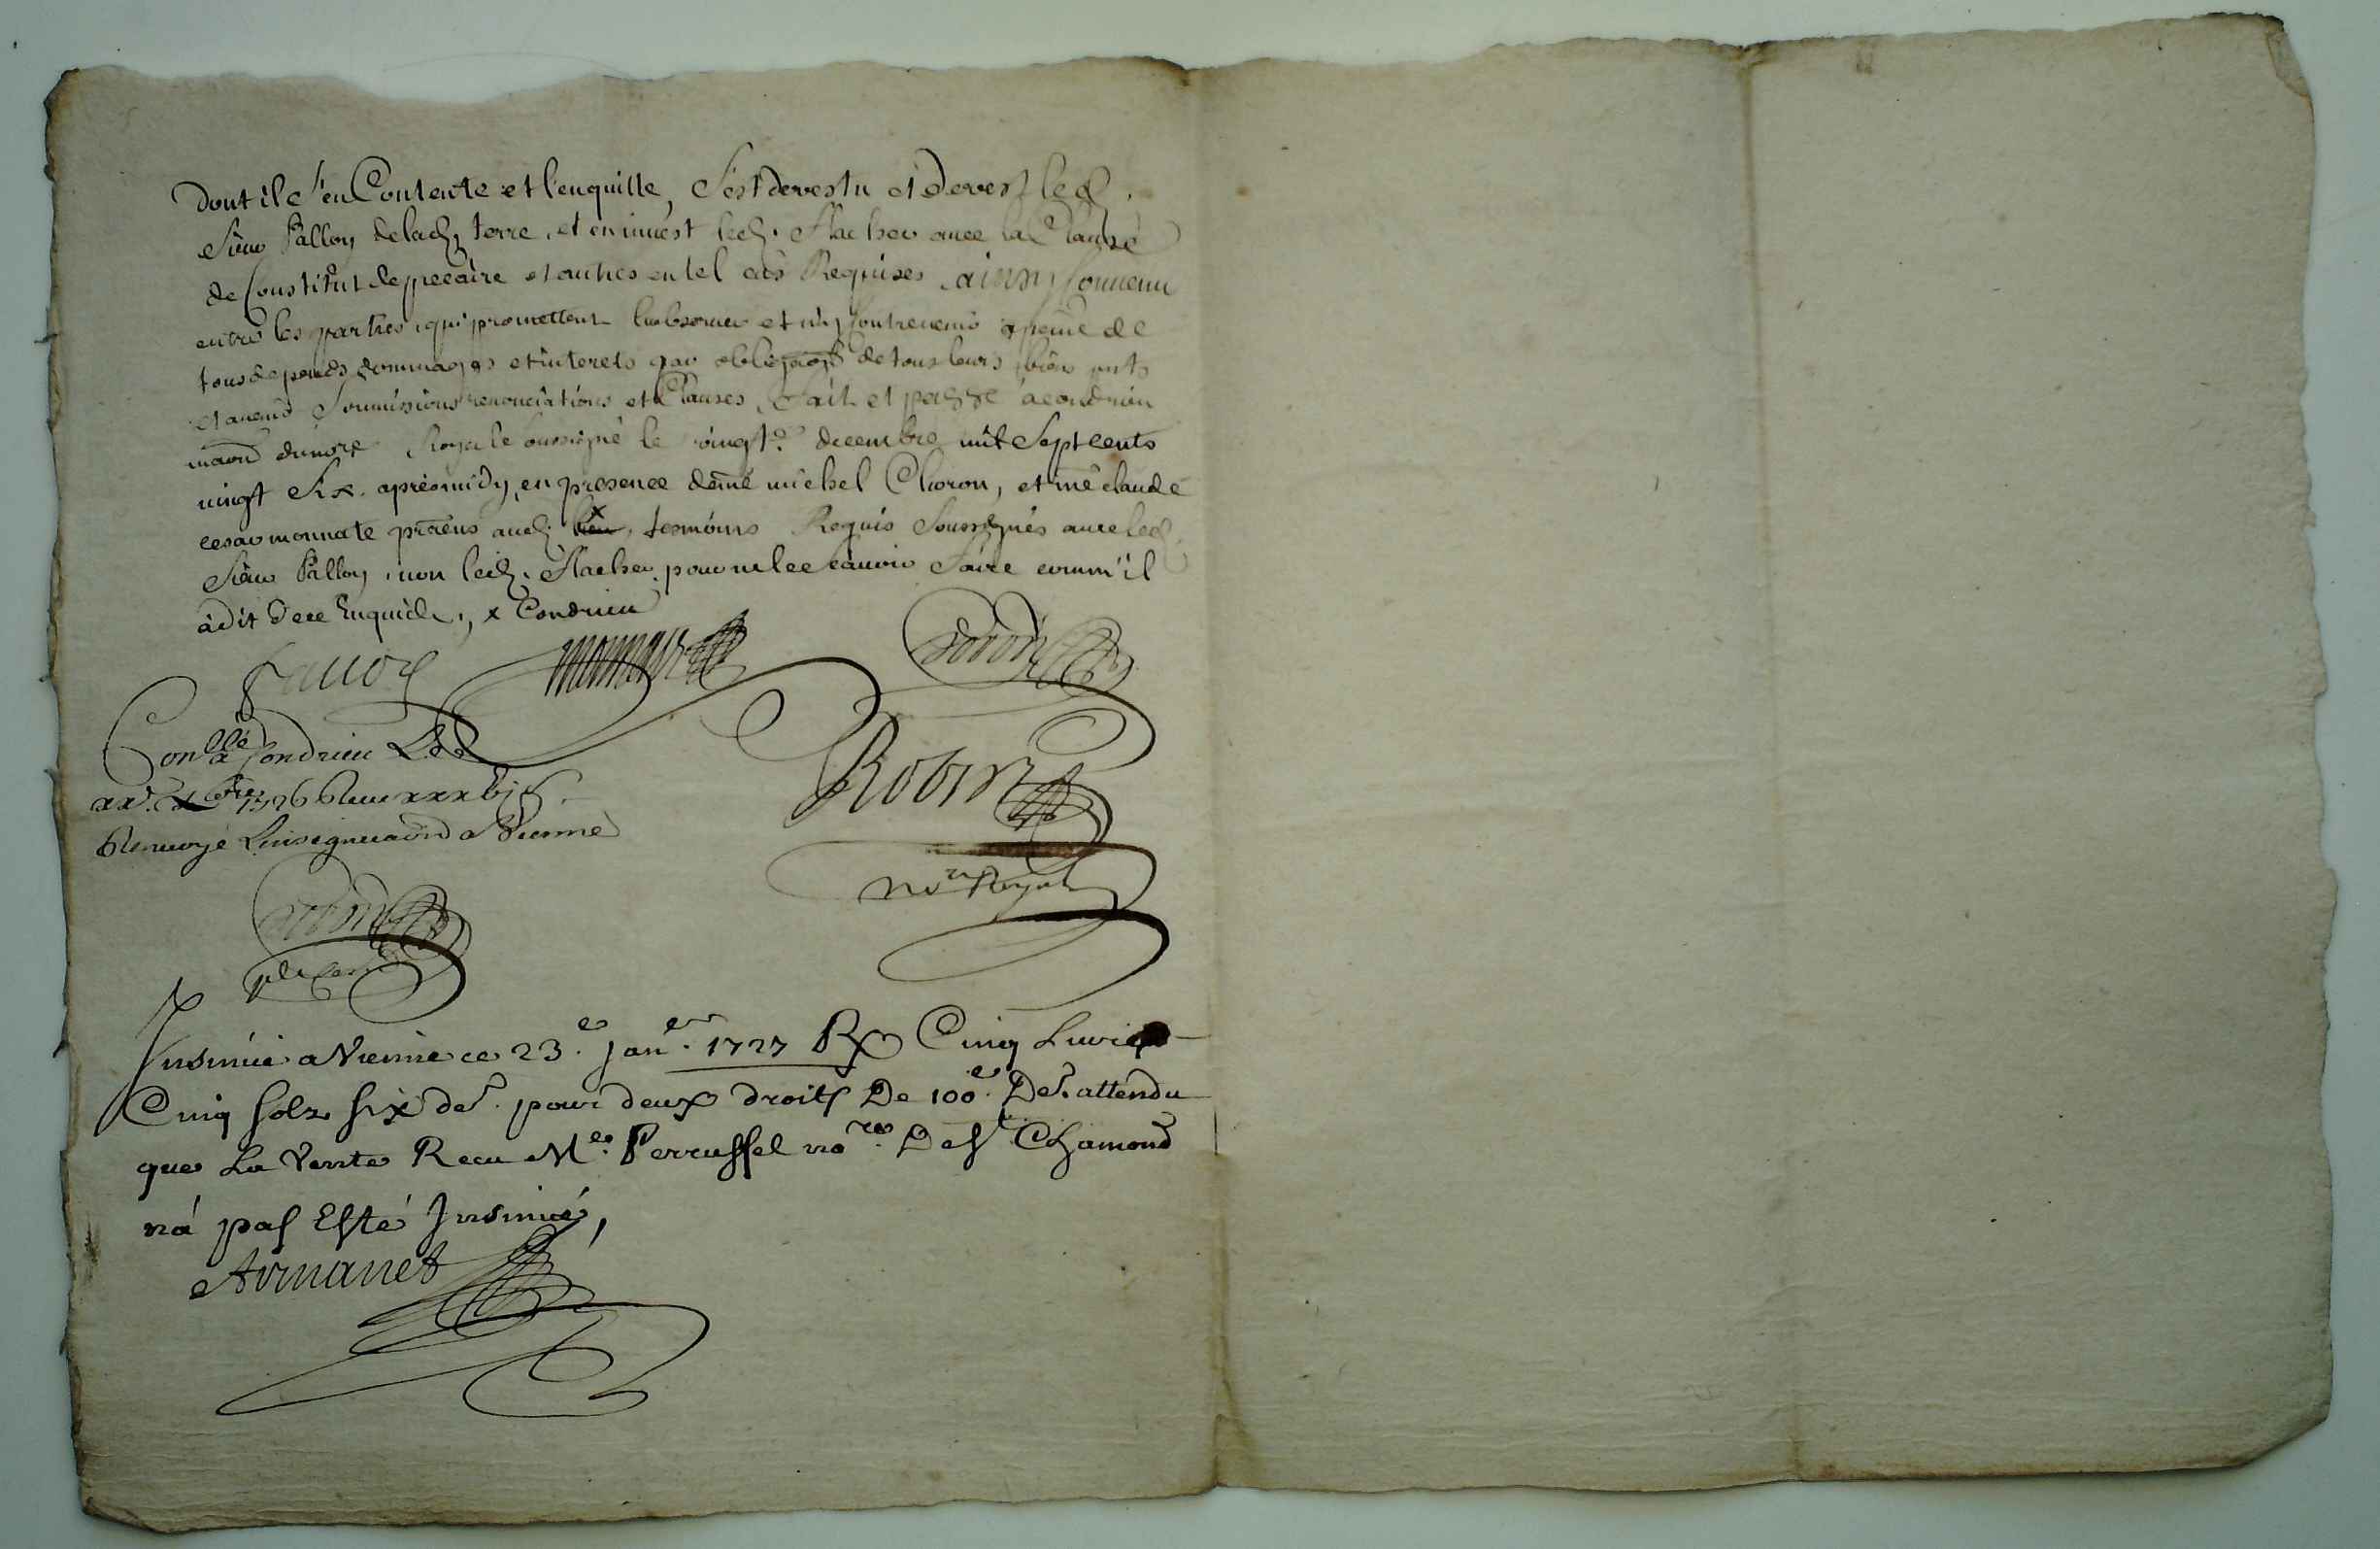 Dont il s'en Contente et l'enquitte, s'est devestu et Devest led.
Sieur Palloy de lad. terre, et en invest led. Flacher avec la Clause
de Constitut de precaire et autres en tel cas Requises ainsy Convenu
entre les parties qui promettent l'observer et n'y Contrevenir a peine de
tous depends dommages et interets par obligaõns de tous leurs biens pnts
et avenir Soumissions renonciations et Clauses, Fait et passé à condrieu
maon du nore Royal soussigné le vingte decembre mil Sept cents
vingt Six apres midy, en presence de me michel Choron, et me claude
cesar monnate pratiens aud. lieu, tesmoins Requis Soussignés avec led.
Sieur Palloy, non led. Flacher pour ne le scavoir Faire comm'il
a dit De ce Enquis, x Condrieu
monnate
Conllé a Condrieu Le
xxe Xbre 1726 Receu
Renvoyé Linsignuaõn a Vienne
Robin
nore Royal
Insinüé a Vienne ce 23e Janer 1727 Rx Cinq Livres
Cinq solz six ders pour deux droits De 100e Der attendu
que La Vente Receu Me Perrussel nore De St Chamond
n'á pas Esté Insinüé,
Armanet